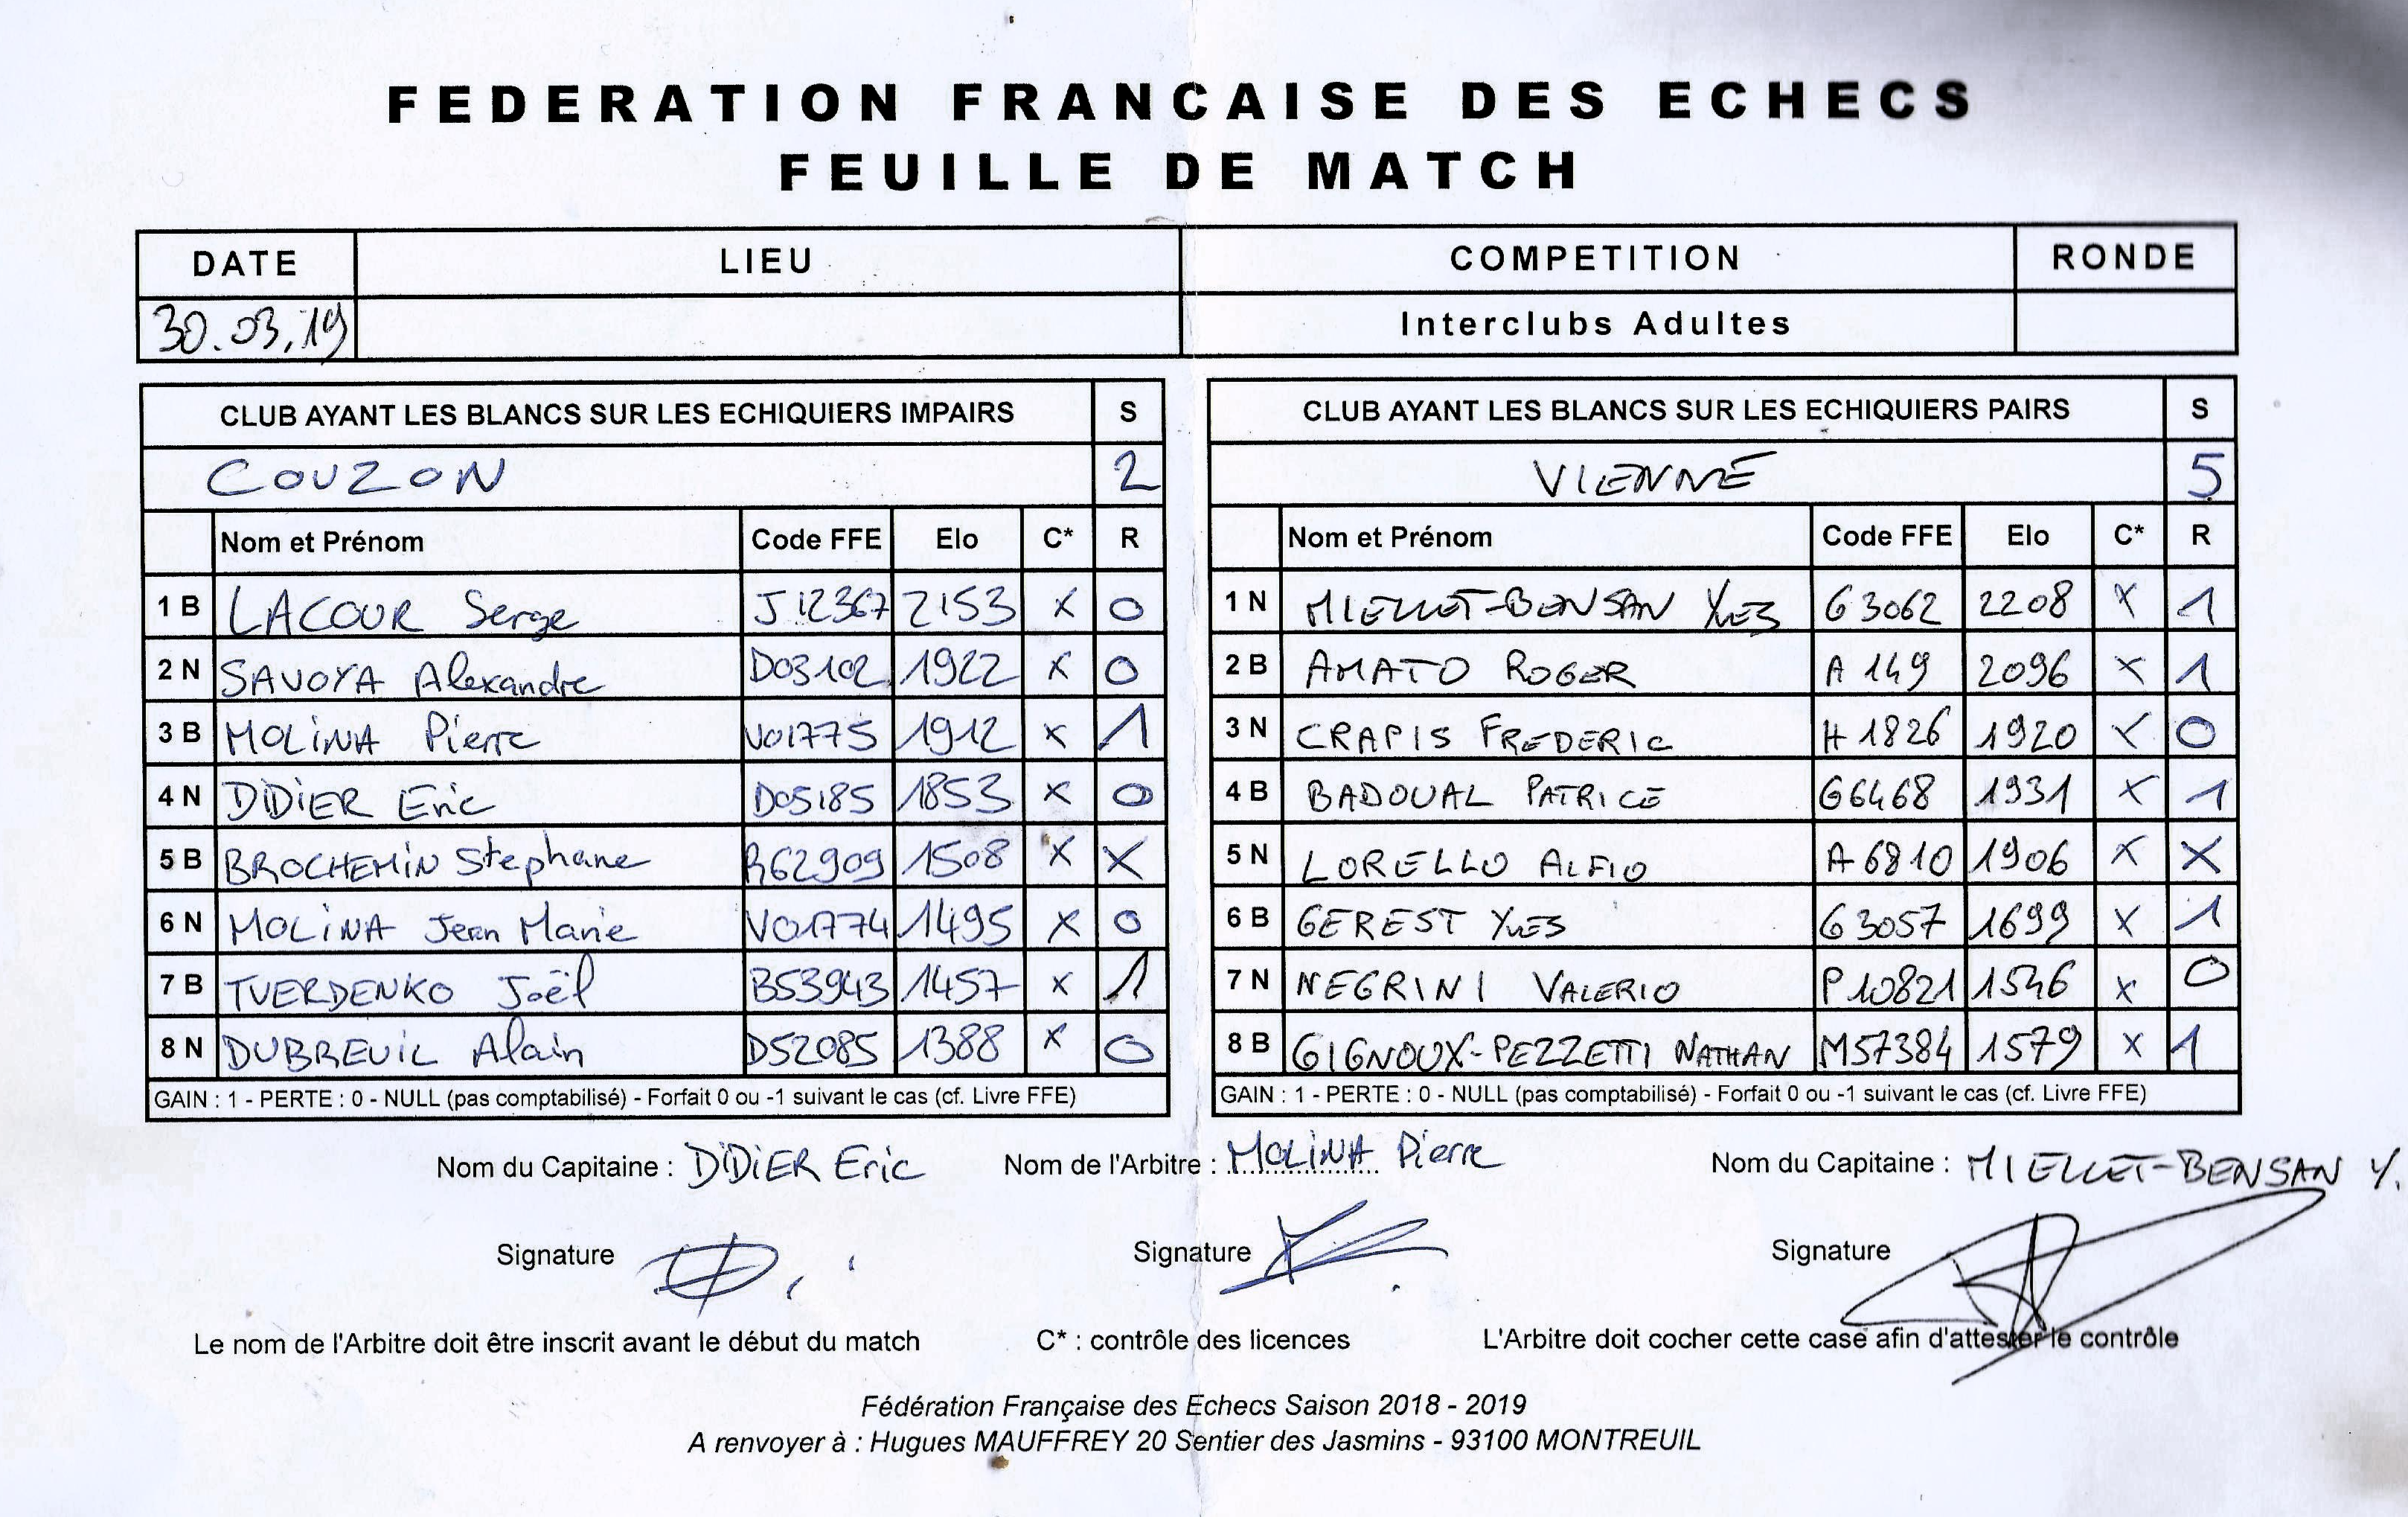 FEDERATION FRANCAISE DES ECHECS
FEUILLE DE MATCH
DATE LIEU COMPETITION RONDE
30.03.19 Interclubs Adultes
CLUB AYANT LES BLANCS SUR LES ECHIQUIERS IMPAIRS S
COUZON 2
Nom et Prénom Code FFE Elo C* R
1 B LACOUR Serge J12367 2153 X 0
2 N SAVOYA Alexandre D03102 1922 X 0
3 B MOLINA Pierre V01775 1912 X 1
4 N DIDIER Eric D05185 1853 X 0
5 B BROCHEMIN Stephane R62909 1508 X X
6 N MOLINA Jean Marie V01774 1495 X 0
7 B TVERDENKO Joël B53943 1457 X 1
8 N DUBREUIL Alain D52085 1388 X 0
GAIN : 1 - PERTE : 0 - NULL (pas comptabilisé) - Forfait 0 ou -1 suivant le cas (cf. Livre FFE)
CLUB AYANT LES BLANCS SUR LES ECHIQUIERS PAIRS S
VIENNE 5
Nom et Prénom Code FFE Elo C* R
1 N MIELLET-BENSAN YVES G3062 2208 X 1
2 B AMATO ROGER A 149 2096 X 1
3 N CRAPIS FREDERIC H 1826 1920 X 0
4 B BADOUAL PATRICE G6468 1931 X 1
5 N LORELLO ALFIO A 6810 1906 X X
6 B GEREST YVES G 3057 1699 X 1
7 N NEGRINI VALERIO P10821 1546 X 0
8 B GIGNOUX-PEZZETTI NATHAN M57384 1579 X 1
GAIN : 1 - PERTE : 0 - NULL (pas comptabilisé) - Forfait 0 ou -1 suivant le cas (cf. Livre FFE)
Nom du Capitaine : DIDIER Eric Nom de l'Arbitre : MOLINA Pierre Nom du Capitaine : MIELLET-BENSAN Y.
Signature Signature Signature
Le nom de l'Arbitre doit être inscrit avant le début du match C* : contrôle des licences L'Arbitre doit cocher cette case afin d'attester le contrôle
Fédération Française des Echecs Saison 2018 - 2019
A renvoyer à : Hugues MAUFFREY 20 Sentier des Jasmins - 93100 MONTREUIL